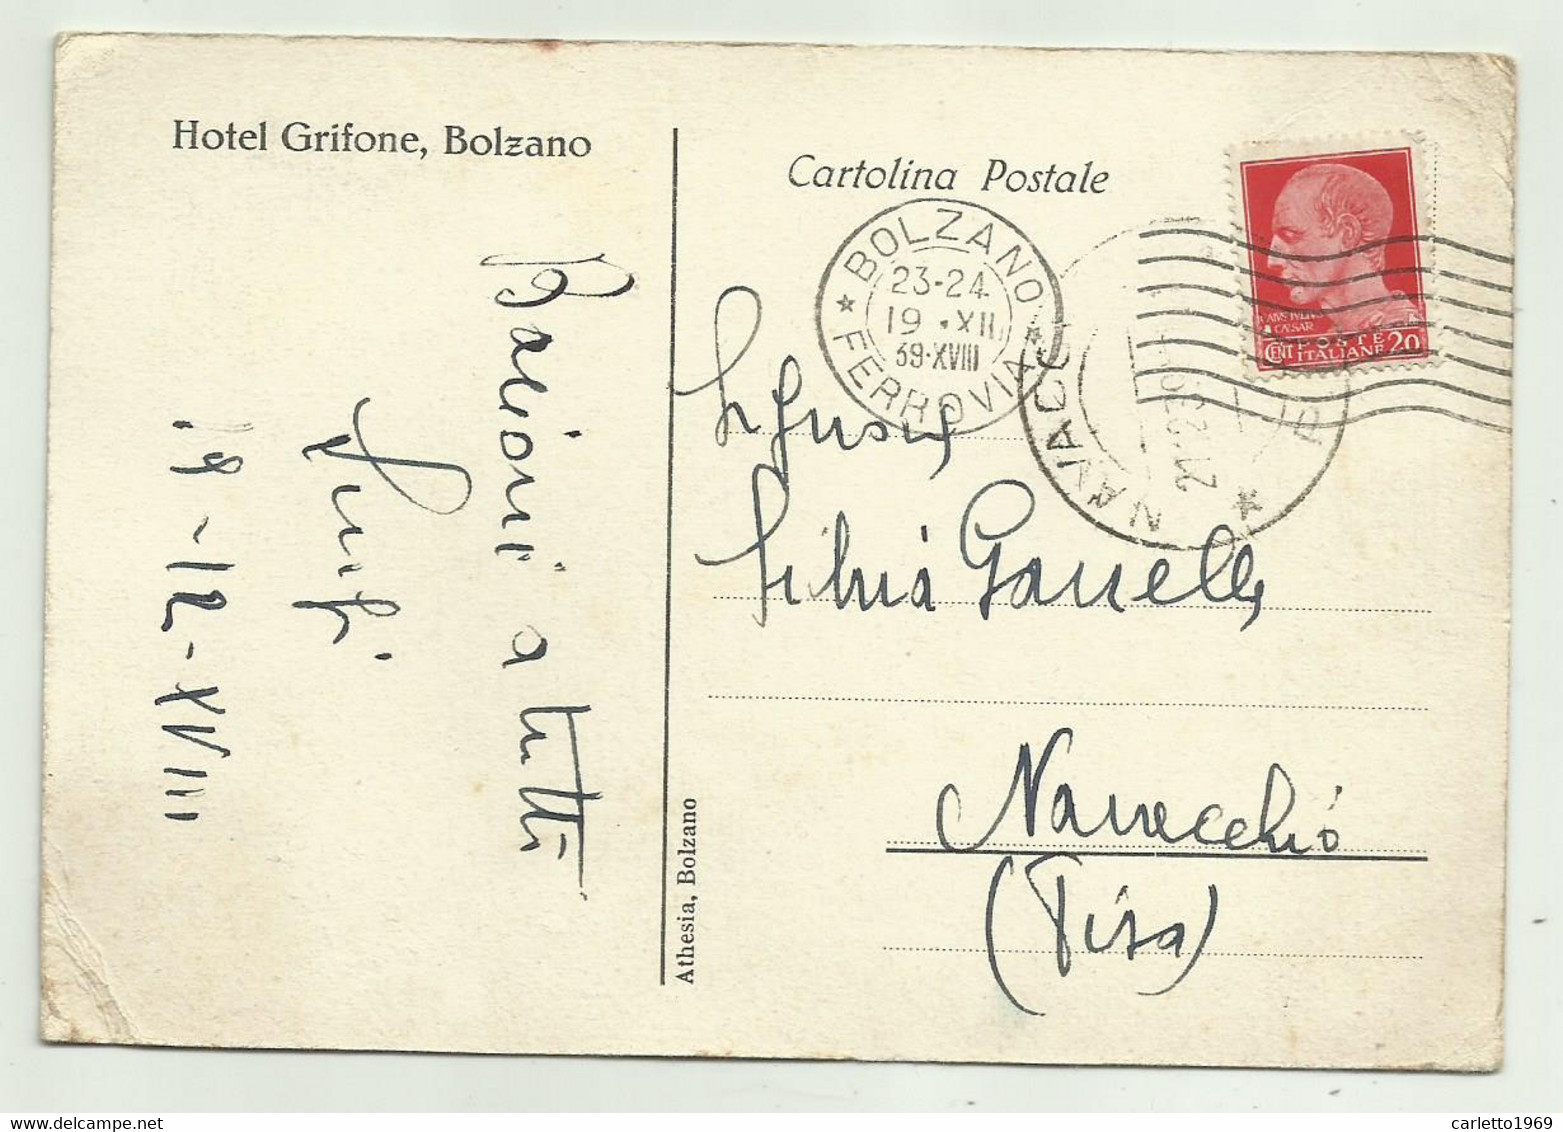 Hotel Grifone, Bolzano
Bacioni a tutti
19-12-XVIII
Athesia, Bolzano
Cartolina Postale
BOLZANO
23-24
19·XII
39·XVIII
FERROVIA
NAVACC
21
IVLIVS
CAESAR
CENT POSTE ITALIANE 20
Silvia
Navacchio
(Pisa)
carletto1969